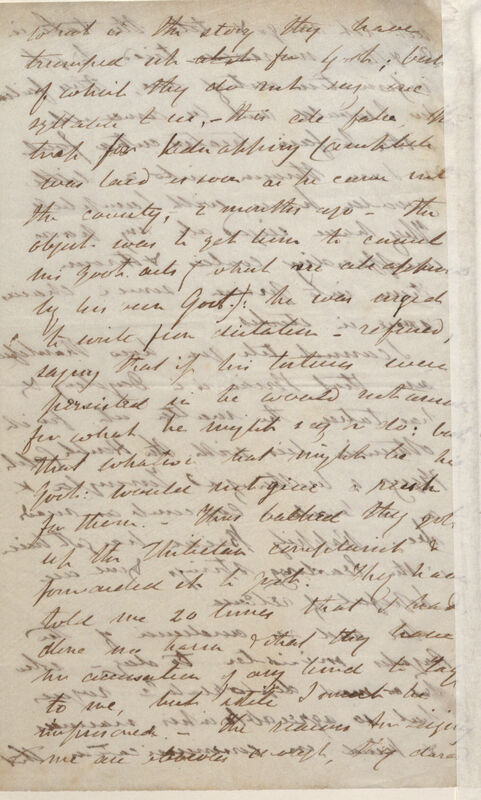 what is the story they have
trumped up for Govt; but
of which they do not say one
syllable to us, - this are false the
trap for kidnapping Campbell
was laid as soon as he came into
the country, 2 months ago - the
object was to get him to cancel
his Govt. acts (which are all approved
by his own Govt): he was urged
to write from dictation - refused,
saying that if his tortures were
persisted in he would not answer
for what he might say or do: but
that whatever that might be his
Govt: would not give a rush
for them. - Thus baulked they got
up the Thibetan complaint &
forwarded it to Govt. They have
told me 20 times that I had
done no harm & that they have
no accusation of any kind to
to me, but still I must be
imprisoned. - The reasons for
me are obvious enough, they